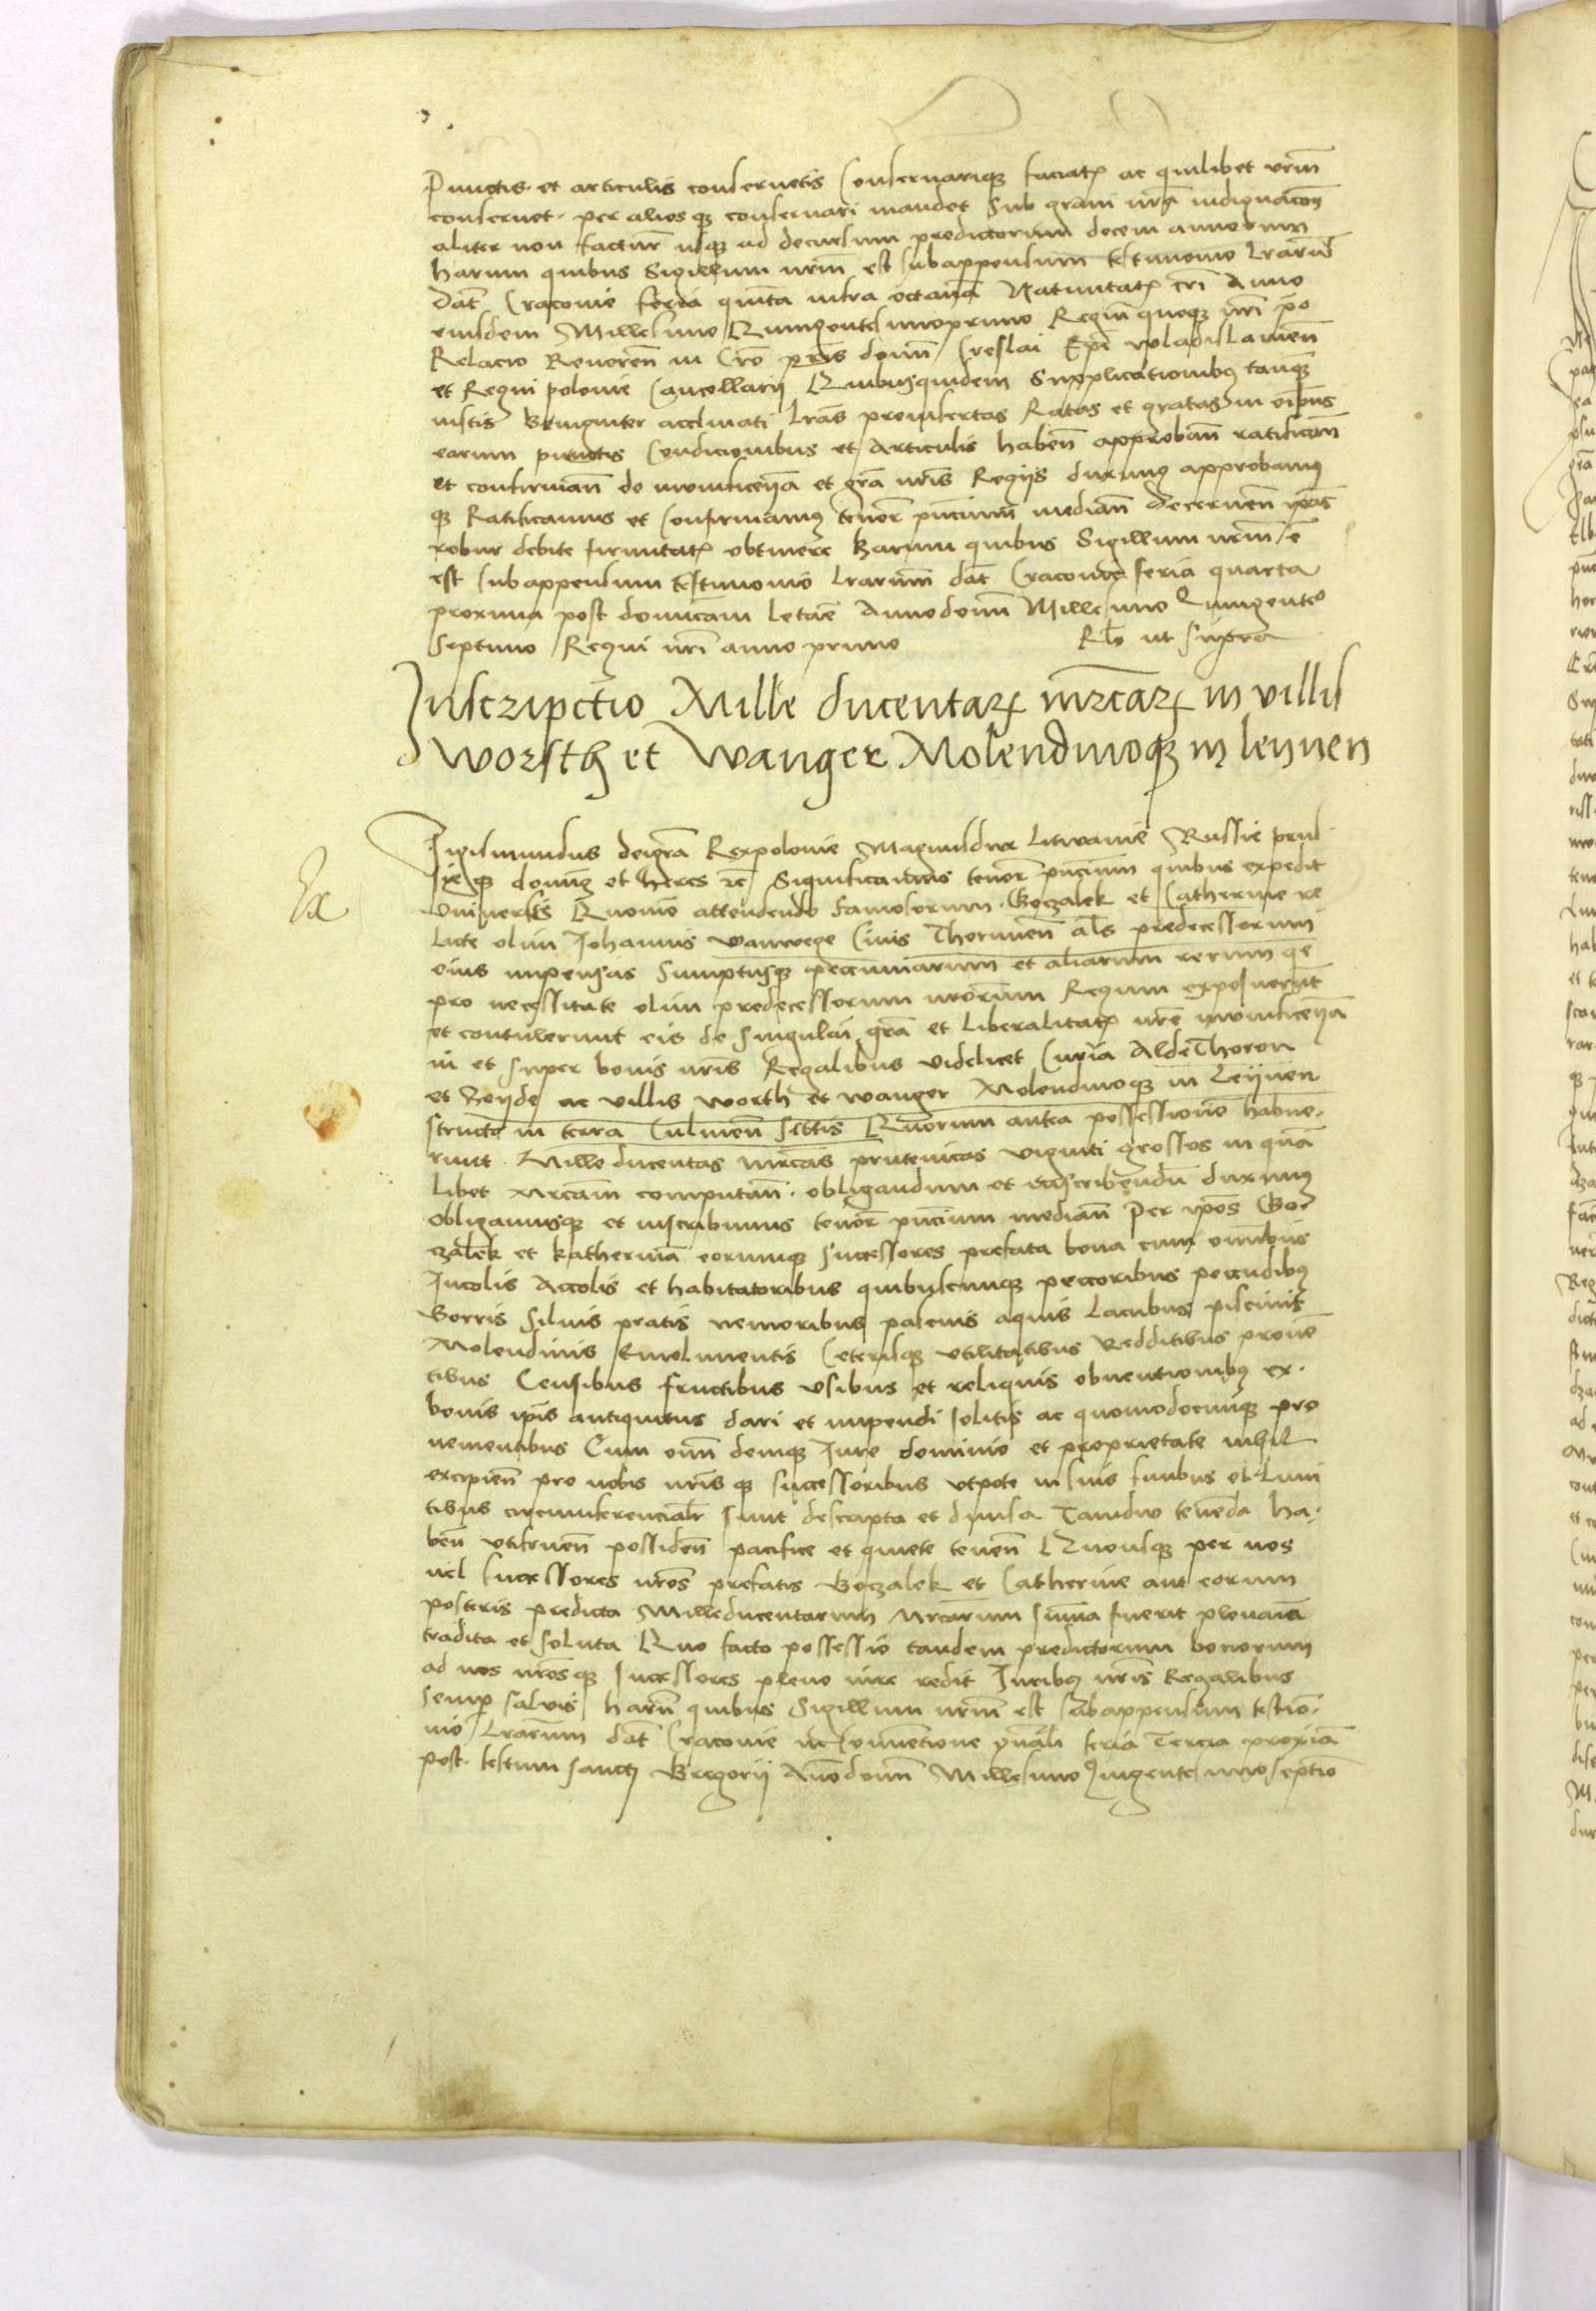 Punctis et articulis conservetis Conservarique faciatꝭ ac quilibet vrm̄
conservet per alios qꝫ conservari mandet Sub gravi nrā indignacōe
aliter non facturꝭ usqꝫ ad decursum predictorum decem annorum
harum quibus Sigillum nrm̄ est subappensum testimonio lrarum̄
Dat̄ Cracovie feria quīta infra octavā Nativitatꝭ cri Anno
eiusdem Millesimo Quingentesimoprimo Regni quoqꝫ nrī po
Relacio Reveren̄ in Cro pr̄is domī Creslai Epī vladislavien̄
et Regni polonie Cancellarii Quibusquidem Supplicationibꝰ tanqꝫ
iustis Benigniter acclinati lrās preinsertas Ratas et gratas in oībus
earum punctis Condicionibus et Articulis haben̄ approban̄ ratifican̄
et confirman̄ de munificencia et grā nrīs Regiis duximꝰ approbamꝰ
qꝫ Ratificamus et Confirmamꝰ tenore pn̄cium median̄ Decernen̄ ip̄as
robur debite firmitatꝭ obtinere harum quibus Sigillum nrm̄
est subappensum testimonio lrarum̄ dat̄ Cracovie feria quarta
proxima post dominicam letare Anno domī Millesimo Quingento
Septimo Regni nrī anno primo Rlō ut supra
Inscripctio Mille ducentarꝝ mrcarꝝ in villis
Worsth et Wanger Molendinoqꝫ in leynen
Sigismundus deigrā Rex polonie Magnusdux Litwanie Russie prus
sie qꝫ dominꝰ et heres ꝛc Significamus tenore pn̄cium quibus expedit
Universis Quomo attendendo famosorum Goczalek et Catherine re
licte olim Johannis vanwege Civis Thorunen̄ al̄s predecessorum
eius impensas Sumptusqꝫ pecuniarum et aliarum rerum qe
pro necessitate olim predecessorum nrorum Regum exposuerunt
et contulerunt eis de singulāi grā et liberalitatꝭ nrē munificencia
in et super bonis nrīs Regalibus videlicet Curia Alde Thoron
et Beyde ac villis worth et wanger Molendinoqꝫ in Leynen
structo in terra Culmen̄ Sitis Quorum antea possessionē habue
runt Mille ducentas mrcas prutenicas viginti grossos in quā
libet mrcam computan̄ obligandum et inscribendū duximꝰ
obligamusqꝫ et inscribimus tenore pn̄cium median̄ Per ip̄os Go
czalek et katherinā eorumqꝫ successores prefata bona cum omnibus
Incolis Accolis et habitatoribus quibuscumqꝫ peccoribus pecudibꝰ
Borris Silvis pratis nemoribus pascuis aquis lacubus piscinis
Molendinis Emolimentis Ceterisqꝫ utilitatibus Redditibus proven
tibus Censibus fructibus usibus et reliquis obventionibꝰ ex
bonis ip̄is antiquitus dari et impendi solitis ac quomodocunqꝫ pro
venientibus Cum omī deniqꝫ Iure dominio et proprietate nihil
excipien̄ pro nobis nrīs qꝫ successoribus utpote in suis finibus et limi
tibus circumferencialr sunt descripta et divisa Tamdiu tenenda ha
ben̄ utifruen̄ possiden̄ pacifice et quiete tenen̄ Quousqꝫ per nos
vel successores nros prefatis Goczalek et Catherine aut eorum
posteris predicta Milleducentarum mrcarum summa fuerit plenarīa
tradita et soluta Quo facto possessio tandem predictorum bonorum
ad nos nrosqꝫ successores pleno iure redit Iuribꝰ nrīs Regalibus
semp salvis harū quibus Sigillum nrm̄ est subappensum testimo
nio lrarum dat̄ Cracovie in Conventione gn̄ali feria Tercia proxima
post festum sancti Gregorii Anno domī Millesimo Quingentesimoseptimo